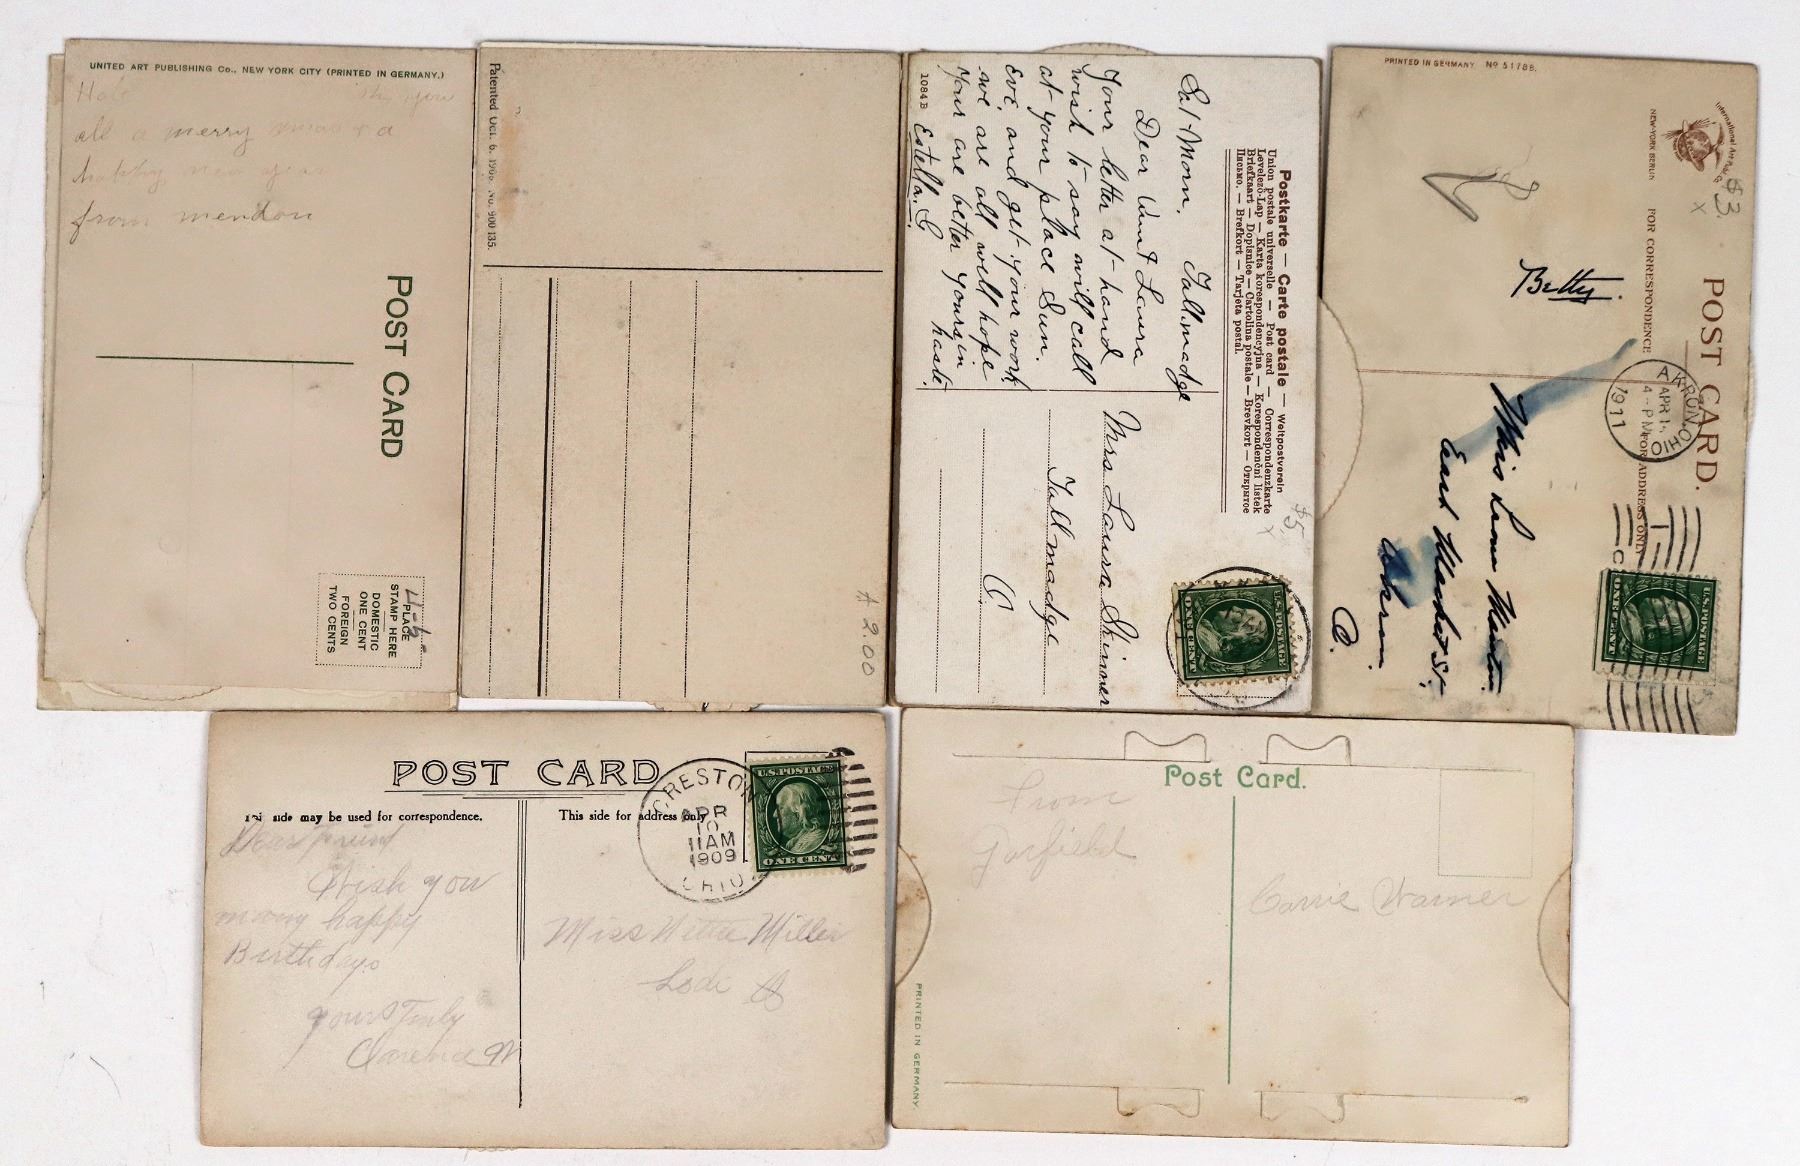 UNITED ART PUBLISHING Co., NEW YORK CITY (PRINTED IN GERMANY.)
you
all a merry xmas & a
happy new year
from mendon
POST CARD
PLACE
STAMP HERE
DOMESTIC
ONE CENT
FOREIGN
TWO CENTS
Patented Oct. 6, 1909. No. 900135.
2.00
1084 B
Postkarte — Carte postale — Weltpostverein
Union postale universelle — Post card — Correspondenzkarte
Levelező-Lap — Karta korespondencyjna — Korespondenční lístek
Briefkaart — Dopisnice — Cartolina postale — Brevkort — Открытое
Письмо. — Brefkort — Tarjeta postal.
$5
Sat-Morn. Tallmadge
Dear Aunt Laura
Your letter at-hand
wish to say will call
at-your place Sun.
Eve, and get-your work
we are all well hope
your are better yours in
haste,
Estella. C
Mrs Laura Skinner
Tallmadge
O.
U.S. POSTAGE
ONE CENT
PRINTED IN GERMANY Nº 51788.
NEW-YORK BERLIN
$3.
X
POST CARD.
FOR CORRESPONDENCE
FOR ADDRESS ONLY
Betty.
AKRON, OHIO
APR
4-PM
1911
East Market St,
Akron.
O.
U.S. POSTAGE
ONE CENT
POST CARD
side may be used for correspondence.
This side for address only
CRESTON
APR
10
11AM
1909
OHIO
U.S. POSTAGE
ONE CENT
Dear Friend
Wish you
many happy
Birthdays
yours Truly
Clarence M
Miss Nettie Miller
Lodi O
Post Card.
From
Garfield
Carrie Warner
PRINTED IN GERMANY.